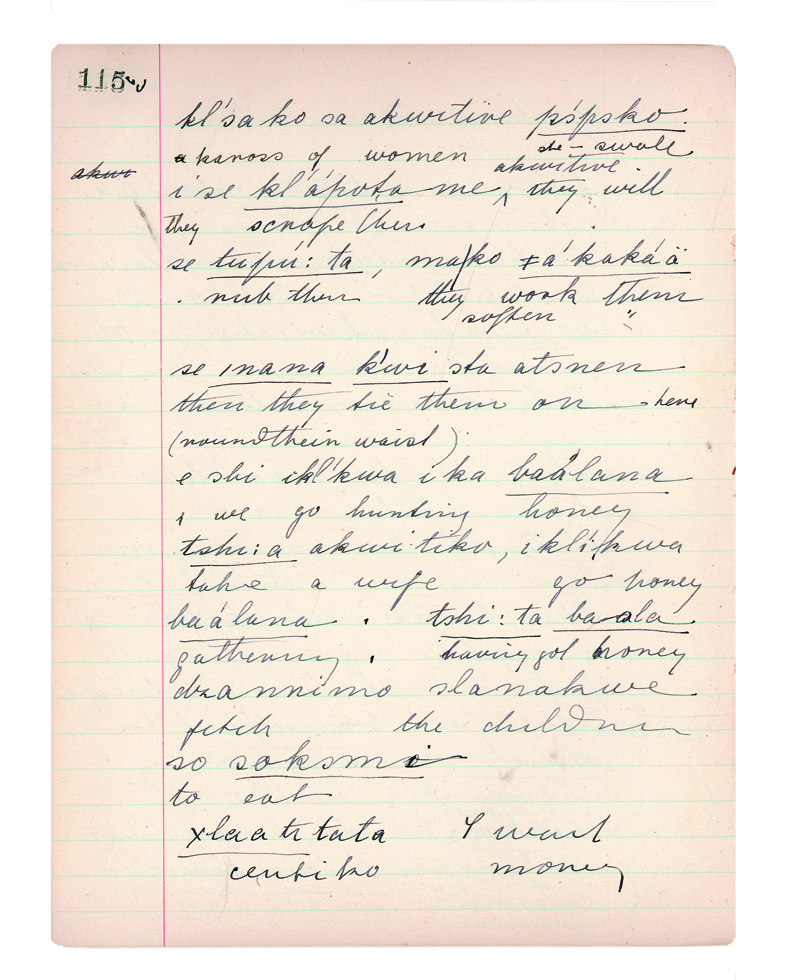 115
kl'sa ko sa akwitive pśpsko.
a kaross of women she - swole
akwitive
akwi
i se kl'ápota me ^ they will
they scrape then
se tupú: ta, ma/ko ɂá'kakáä
. rub then they work them
soften "
se ınana k'wi sta atsnen
then they tie them on here
(round their waist)
e shi ikl'kwa i ka baálana
& we go hunting honey
tshi:a akwitiko, iklíkwa
take a wife go honey
baálana . tshi: ta baala
gathering . having got honey
dzannimo slanakwe
fetch the children
so soksmi
to eat
xlaatitata I want
centiko money